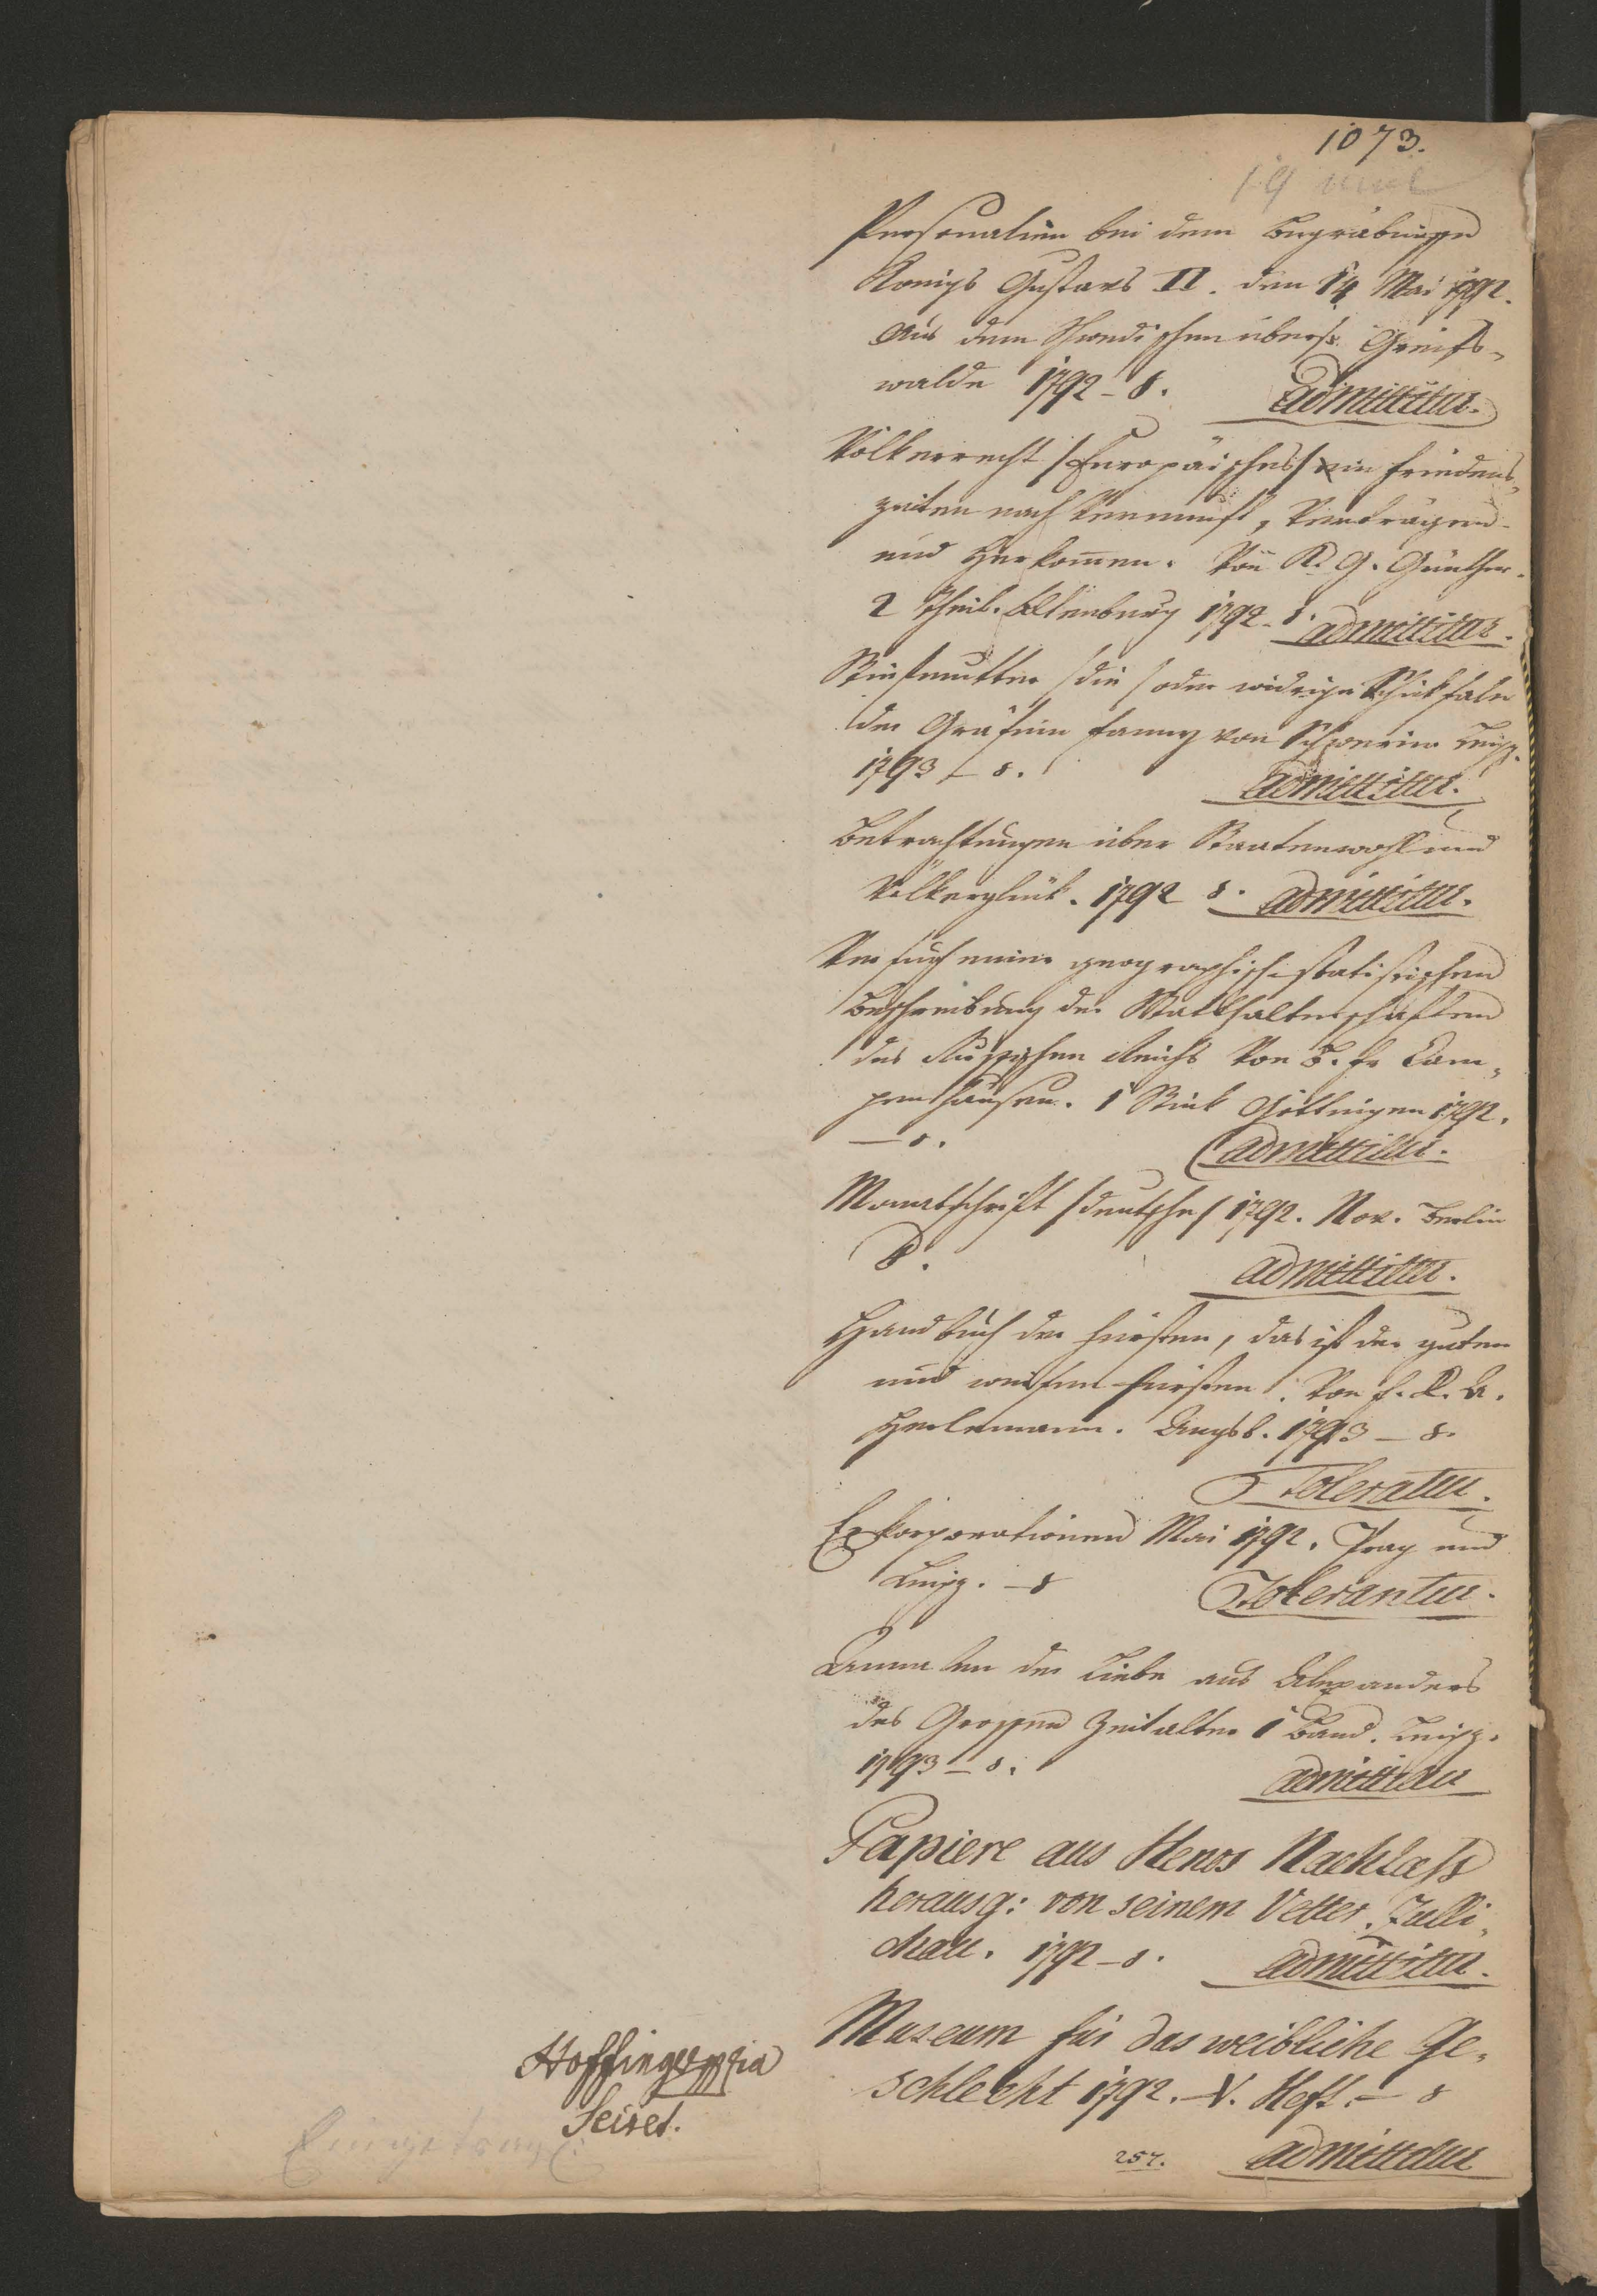 1073.
19
Personalien bei dem Begräbnisse
Königs Gustavs II. den 14 Mai 1792.
Aus dem Schwedischen übers. Greifs-
walde 1792 - 8. admittitur.
Völkerrecht /Europäisches/ in Friedens-
zeiten nach Vernunft, Verträgen
und Herkom̅en. Von K. G. Günther.
2 Theil. Altenburg 1792 - 8. admittitur.
Stiefmutter /die/ oder widrige Schiksale
der Gräfinn Fanny von Schwerin Leipz.
1793 - 8. admittitur.
Betrachtungen über Staatenwohl und
Völkerglük. 1792 8. admittitur.
Versuch einer geographisch-statistischen
Beschreibung der Statthalterschaften
des Russischen Reichs von B. Fr. Cam-
penhausen. 1 Stük Göttingen 1792.
- 8. admittitur.
Monatschrift /deutsche/ 1792. Nov. Berlin
8. admittitur.
Handbuch der Fürsten, das ist der guten
und weisen Fürsten. Von F. K. A.
Heilemann. Augsb. 1793 - 8.
Toleratur.
Exkorporationen Mai 1792. Prag und
Leipz. - 8 Tolerantur.
Annalen der Liebe aus Alexanders
des Grossen Zeitalter 1 Band. Leipz.
1793 - 8. admittitur
Papiere aus Henos Nachlaß
herausg: von seinem Vetter. Zülli-
chau. 1792 - 8. admittitur.
Museum für das weibliche Ge-
schlecht 1792. - V. Heft. - 8
257. admittitur
Hoffinger mpria
Secret.